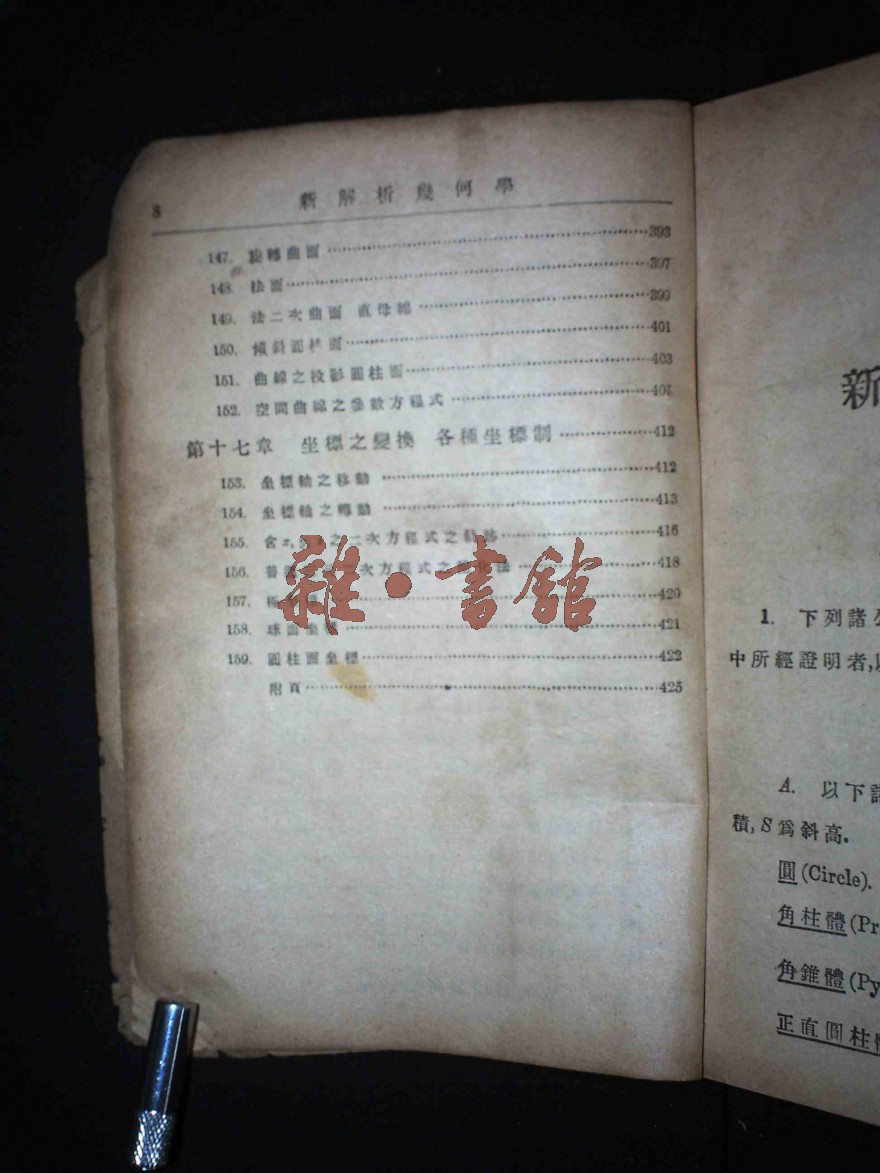 8 新解析幾何學
147. 旋轉曲面 393
148. 法面 397
149. 法二次曲面 直母線 399
150. 傾斜圓柱面 401
151. 曲線之投影圓柱面 403
152. 空間曲線之參數方程式 404
第十七章 坐標之變換 各種坐標制 412
153. 坐標軸之移動 412
154. 坐標軸之轉動 413
155. 含 之二次方程式之 416
156. 二次方程式之 化法 418
157. 420
158. 球面坐標 421
159. 圓柱面坐標 422
附頁 425
雜·書館
新
1. 下列諸公
中所經證明者,以
A. 以下諸
積, S 爲斜高.
圓 (Circle).
角柱體 (Pr
角錐體 (Py
正直圓柱體